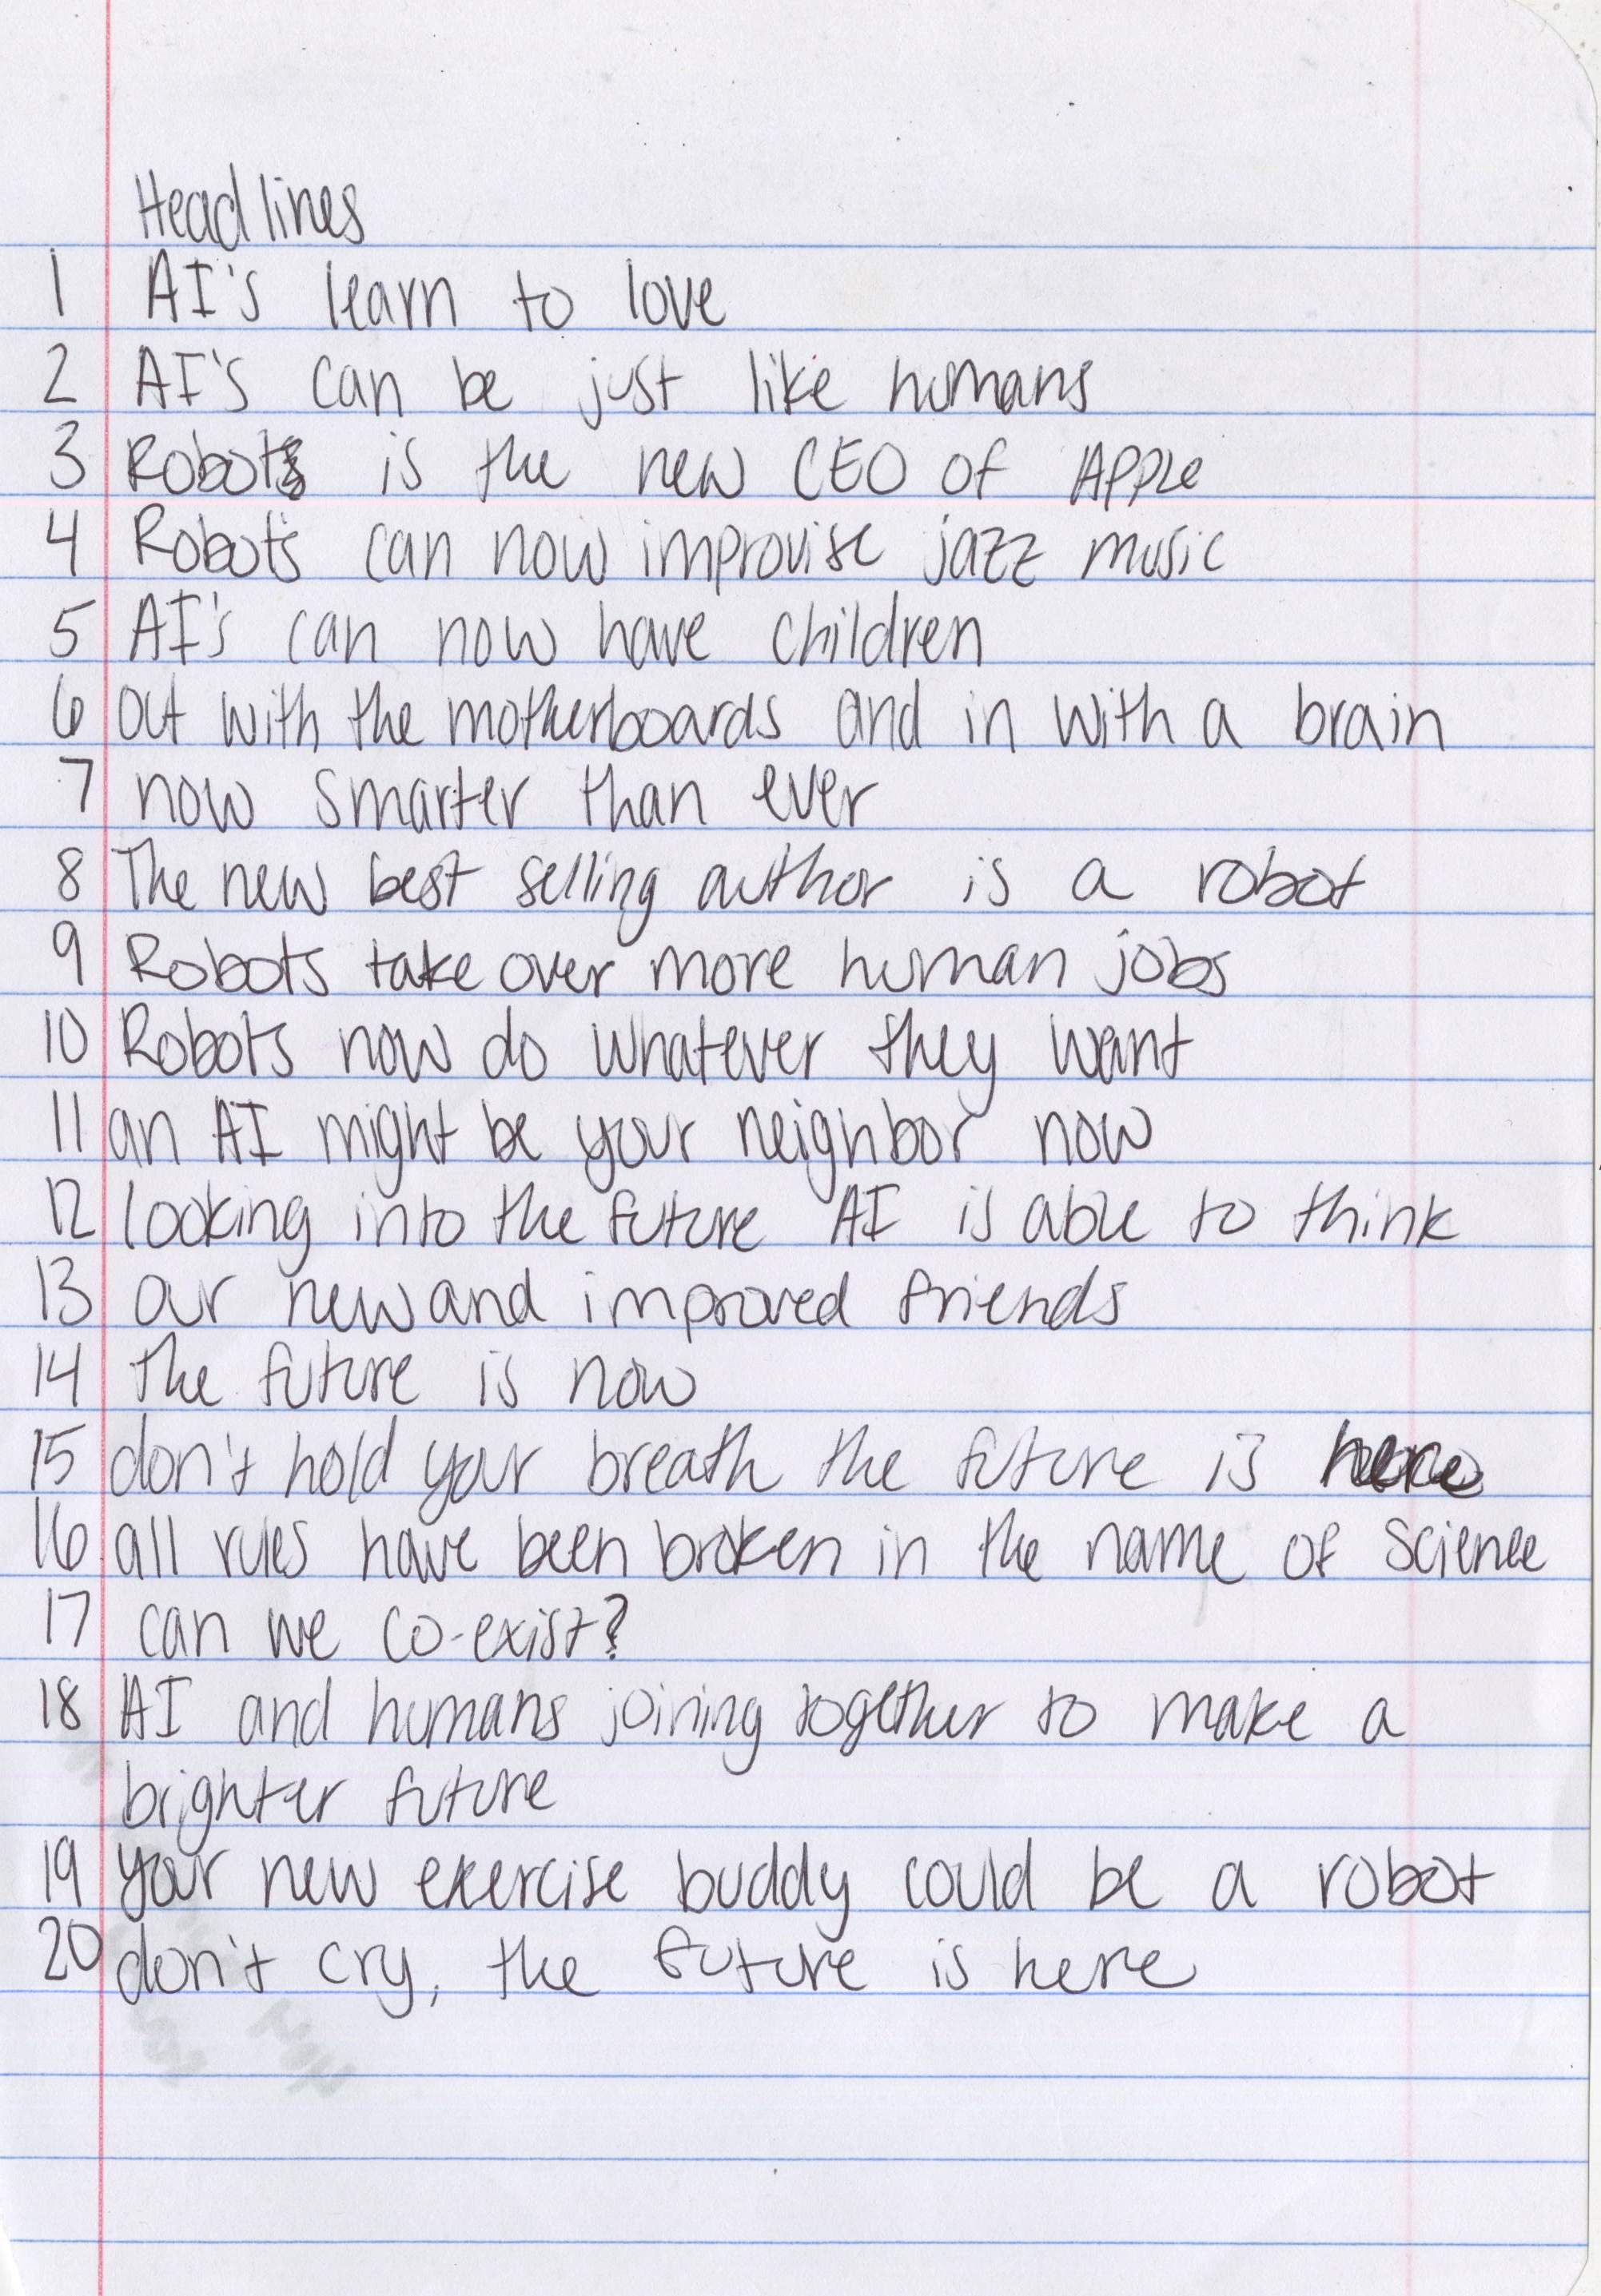 Headlines
1 AI's learn to love
2 AI's can be just like humans
3 Robot is the new CEO of Apple
4 Robots can now improvise jazz music
5 AI's can now have children
6 out with the motherboards and in with a brain
7 now smarter than ever
8 The new best selling author is a robot
9 Robots take over more human jobs
10 Robots now do whatever they want
11 an AI might be your neighbor now
12 looking into the future AI is able to think
13 our new and improved friends
14 the future is now
15 don't hold your breath the future is here
16 all rules have been broken in the name of science
17 can we co-exist?
18 AI and humans joining together to make a
brighter future
19 your new exercise buddy could be a robot
20 don't cry, the future is here